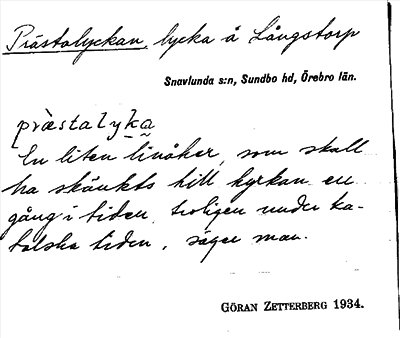 Prästalyckan, lycka å Långstorp
Snavlunda s:n, Sundbo hd, Örebro län.
præ̀stalyka
En liten linåker, som skall
ha skänkts till kyrkan en
gång i tiden, troligen under ka-
tolska tiden, säger man.
GÖRAN ZETTERBERG 1934.